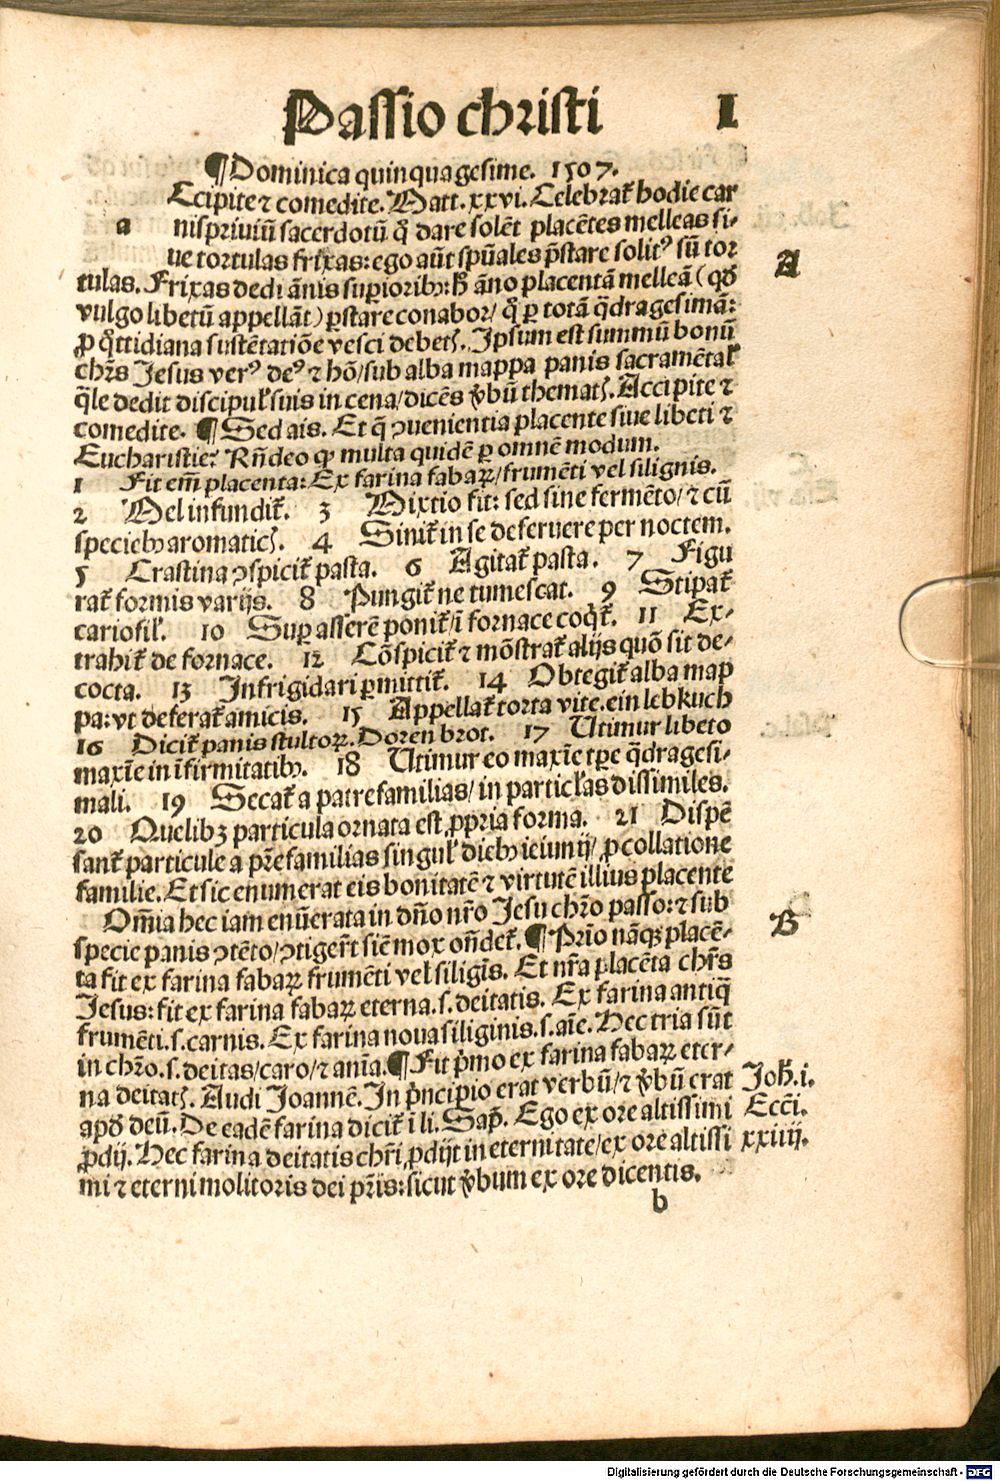 Passio christi I
¶ Dominica quinquagesime. 1507.
a Ccipite ⁊ comedite. Matt. xxvi. Celebrat᷑ hodie car
nispriuiū sacerdotū q̄ dare solēt placētes melleas si-
ue tortulas frixas: ego aūt spūales p̄stare solitꝰ sū tor
tulas. Frixas dedi ānis supioribꝫ: hͦ āno placentā melleā (qđ
vulgo libetū appellāt) p̄stare conabor/ q̄ ꝑ totā q̄dragesimā:
ꝓ q̊ttidiana sustētatiōe vesci debetꝭ. Ipsum est summū bonū
chr̄s Jesus verꝰ deꝰ ⁊ hō/ sub alba mappa panis sacramētal̓
q̄le dedit discipul̓ suis in cena/ dicēs v̓bū thematꝭ. Accipite ⁊
comedite. ¶ Sed ais. Et q̄ ꝯuenientia placente siue libeti ⁊
Eucharistie? Rn̄deo ꝙ multa quidē ꝑ omnē modum.
1 Fit em̄ placenta: Ex farina fabaꝝ/ frumēti vel silignis.
2 Mel infundit᷑. 3 Mixtio fit: sed sine fermēto/ ⁊ cū
speciebꝫ aromaticꝭ. 4 Sinit᷑ in se deseruere per noctem.
5 Crastina ꝯspicit᷑ pasta. 6 Agitat᷑ pasta. 7 Figu
rat᷑ formis varijs. 8 Pungit᷑ ne tumescat. 9 Stipat᷑
cariofil̓. 10 Suꝑ asserē ponit᷑/ ī fornace coq̇t᷑. 11 Ex-
trahit᷑ de fornace. 12 Cōspicit᷑ ⁊ mōstrat᷑ alijs quō sit de-
cocta. 13 Infrigidari ꝑmittit᷑. 14 Obtegit᷑ alba map
pa: vt deferat᷑ amicis. 15 Appellat᷑ torta vite. ein lebkuch
16 Dicit᷑ panis stultoꝝ. Doren brot. 17 Utimur libeto
maxīe in īfirmitatibꝫ. 18 Utimur eo maxīe tꝑe q̄dragesi-
mali. 19 Secat᷑ a patrefamilias/ in particl̓as dissimiles.
20 Quelibꝫ particula ornata est ꝓpria forma. 21 Dispē
sant᷑ particule a pr̄efamilias singul̓ diebꝫ ieiunij/ ꝓ collatione
familie. Et sic enumerat eis bonitatē ⁊ virtutē illius placente
Om̄ia hec iam enūerata in dn̄o nr̄o Jesu chr̄o passo: ⁊ sub
specie panis ꝯtēto/ ꝯtigerūt siē mox on̄det᷑. ¶ Prīo nāqꝫ placē-
ta fit ex farina fabaꝝ frumēti vel siligīs. Et nr̄a placēta chr̄s
Jesus: fit ex farina fabaꝝ eterna. s. deitatis. Ex farina antiq̄
frumēti. s. carnis. Ex farina noua siliginis. s. aīe. Hec tria sūt
in chr̄o. s. deitas/ caro/ ⁊ anīa. ¶ Fit p̄mo ex farina fabaꝝ eter-
na deitatꝭ. Audi Joannē. In p̄ncipio erat verbū/ ⁊ v̓bū erat
apđ deū. De eadē farina dicit᷑ i li. Sap̄. Ego ex ore altissimi
ꝓdij. Hec farina deitatis chr̄i ꝓdijt in eternitate/ ex ore altissi
mi ⁊ eterni molitoris dei pr̄is: sicut v̓bum ex ore dicentis.
b
A
B
Joh̄. i.
Ecc̄i.
xxiiij.
Digitalisierung gefördert durch die Deutsche Forschungsgemeinschaft - DFG